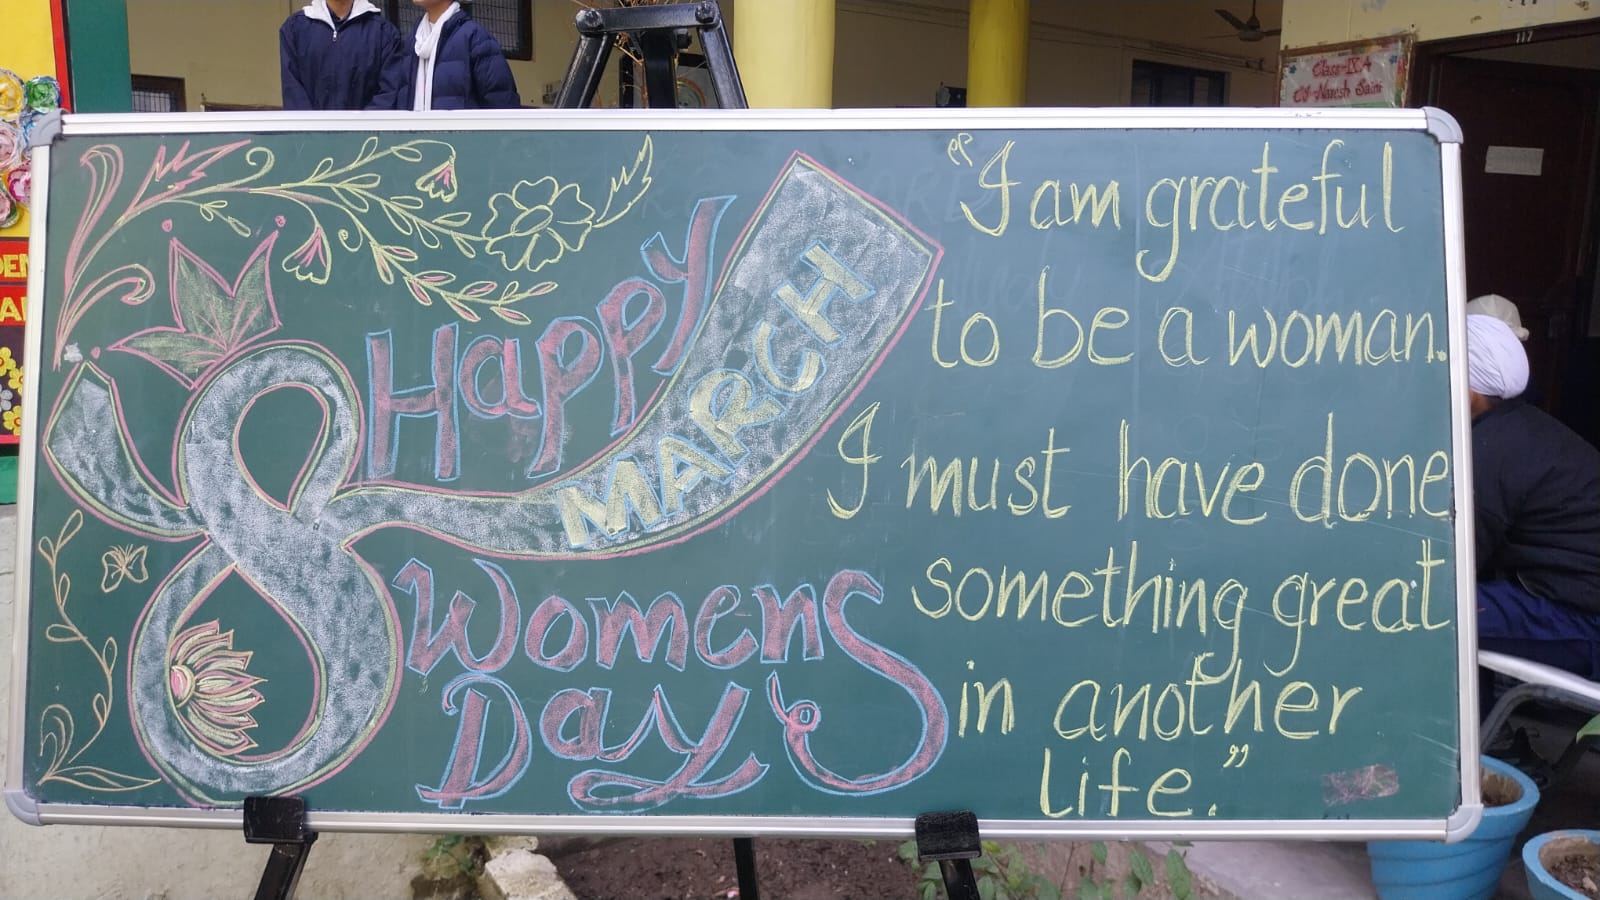 Happy
8 MARCH
Womens
Day
"I am grateful
to be a woman.
I must have done
something great
in another
life."
Class-IX A
CI-Naresh Saini
117